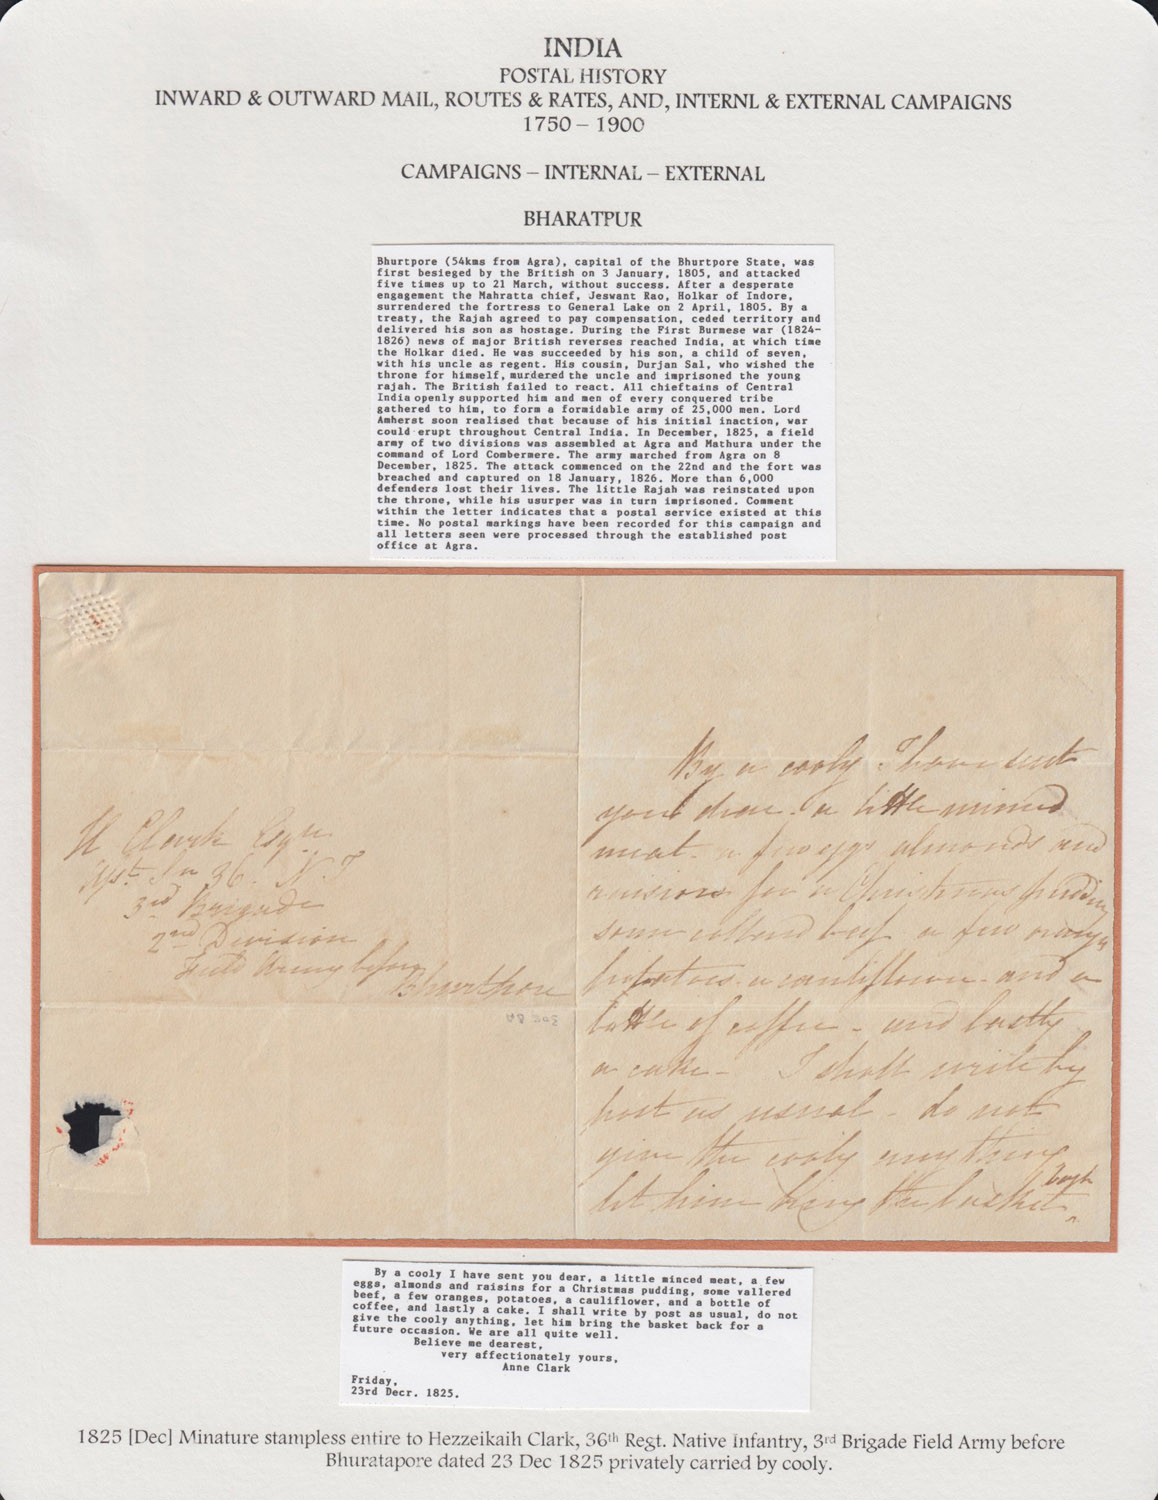 INDIA
POSTAL HISTORY
INWARD & OUTWARD MAIL, ROUTES & RATES, AND, INTERNL & EXTERNAL CAMPAIGNS
1750 – 1900
CAMPAIGNS – INTERNAL – EXTERNAL
BHARATPUR
Bhurtpore (54kms from Agra), capital of the Bhurtpore State, was
first besieged by the British on 3 January, 1805, and attacked
five times up to 21 March, without success. After a desperate
engagement the Mahratta chief, Jeswant Rao, Holkar of Indore,
surrendered the fortress to General Lake on 2 April, 1805. By a
treaty, the Rajah agreed to pay compensation, ceded territory and
delivered his son as hostage. During the First Burmese war (1824-
1826) news of major British reverses reached India, at which time
the Holkar died. He was succeeded by his son, a child of seven,
with his uncle as regent. His cousin, Durjan Sal, who wished the
throne for himself, murdered the uncle and imprisoned the young
rajah. The British failed to react. All chieftains of Central
India openly supported him and men of every conquered tribe
gathered to him, to form a formidable army of 25,000 men. Lord
Amherst soon realised that because of his initial inaction, war
could erupt throughout Central India. In December, 1825, a field
army of two divisions was assembled at Agra and Mathura under the
command of Lord Combermere. The army marched from Agra on 8
December, 1825. The attack commenced on the 22nd and the fort was
breached and captured on 18 January, 1826. More than 6,000
defenders lost their lives. The little Rajah was reinstated upon
the throne, while his usurper was in turn imprisoned. Comment
within the letter indicates that a postal service existed at this
time. No postal markings have been recorded for this campaign and
all letters seen were processed through the established post
office at Agra.
H Clark Esqre
36 N.I
3rd Brigade
2nd Division
Field Army before
Bhurtpore
By a cooly I have sent
you dear a little minced
meat a few eggs almonds and
raisins for a Christmas pudding
some beef a few oranges
potatoes a cauliflower and a
bottle of coffee - and lastly
a cake - I shall write by
post as usual - do not
give the cooly anything
let him bring the basket back
By a cooly I have sent you dear, a little minced meat, a few
eggs, almonds and raisins for a Christmas pudding, some vallered
beef, a few oranges, potatoes, a cauliflower, and a bottle of
coffee, and lastly a cake. I shall write by post as usual, do not
give the cooly anything, let him bring the basket back for a
future occasion. We are all quite well.
Believe me dearest,
very affectionately yours,
Anne Clark
Friday,
23rd Decr. 1825.
1825 [Dec] Minature stampless entire to Hezzeikaih Clark, 36th Regt. Native Infantry, 3rd Brigade Field Army before
Bhuratapore dated 23 Dec 1825 privately carried by cooly.